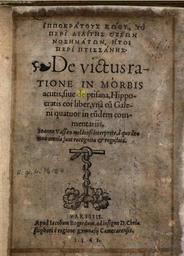 ΙΠΠΟΚΡΑΤΟΥΣ ΚΩΟΥ, ΤΟ
ΠΕΡΙ ΔΙΑΙΤΗΣ ΟΞΕΩΝ
ΝΟΣΗΜΑΤΩΝ, ΗΤΟΙ
ΠΕΡΙ ΠΤΙΣΣΑΝΗΣ
De victus ra-
TIONE IN MORBIS
acutis, siue de ptisana, Hippo-
cratis coi liber, vnà cū Gale-
ni quatuor in eūdem com-
mentariis,
Ioanne Vassæo meldensi interprete, à quo de-
nuo omnia sunt recognita &
PARISIIS.
Apud Iacobum Bogardum, ad insigne D. Chri-
stophori è regione gymnasij Cameracensis.